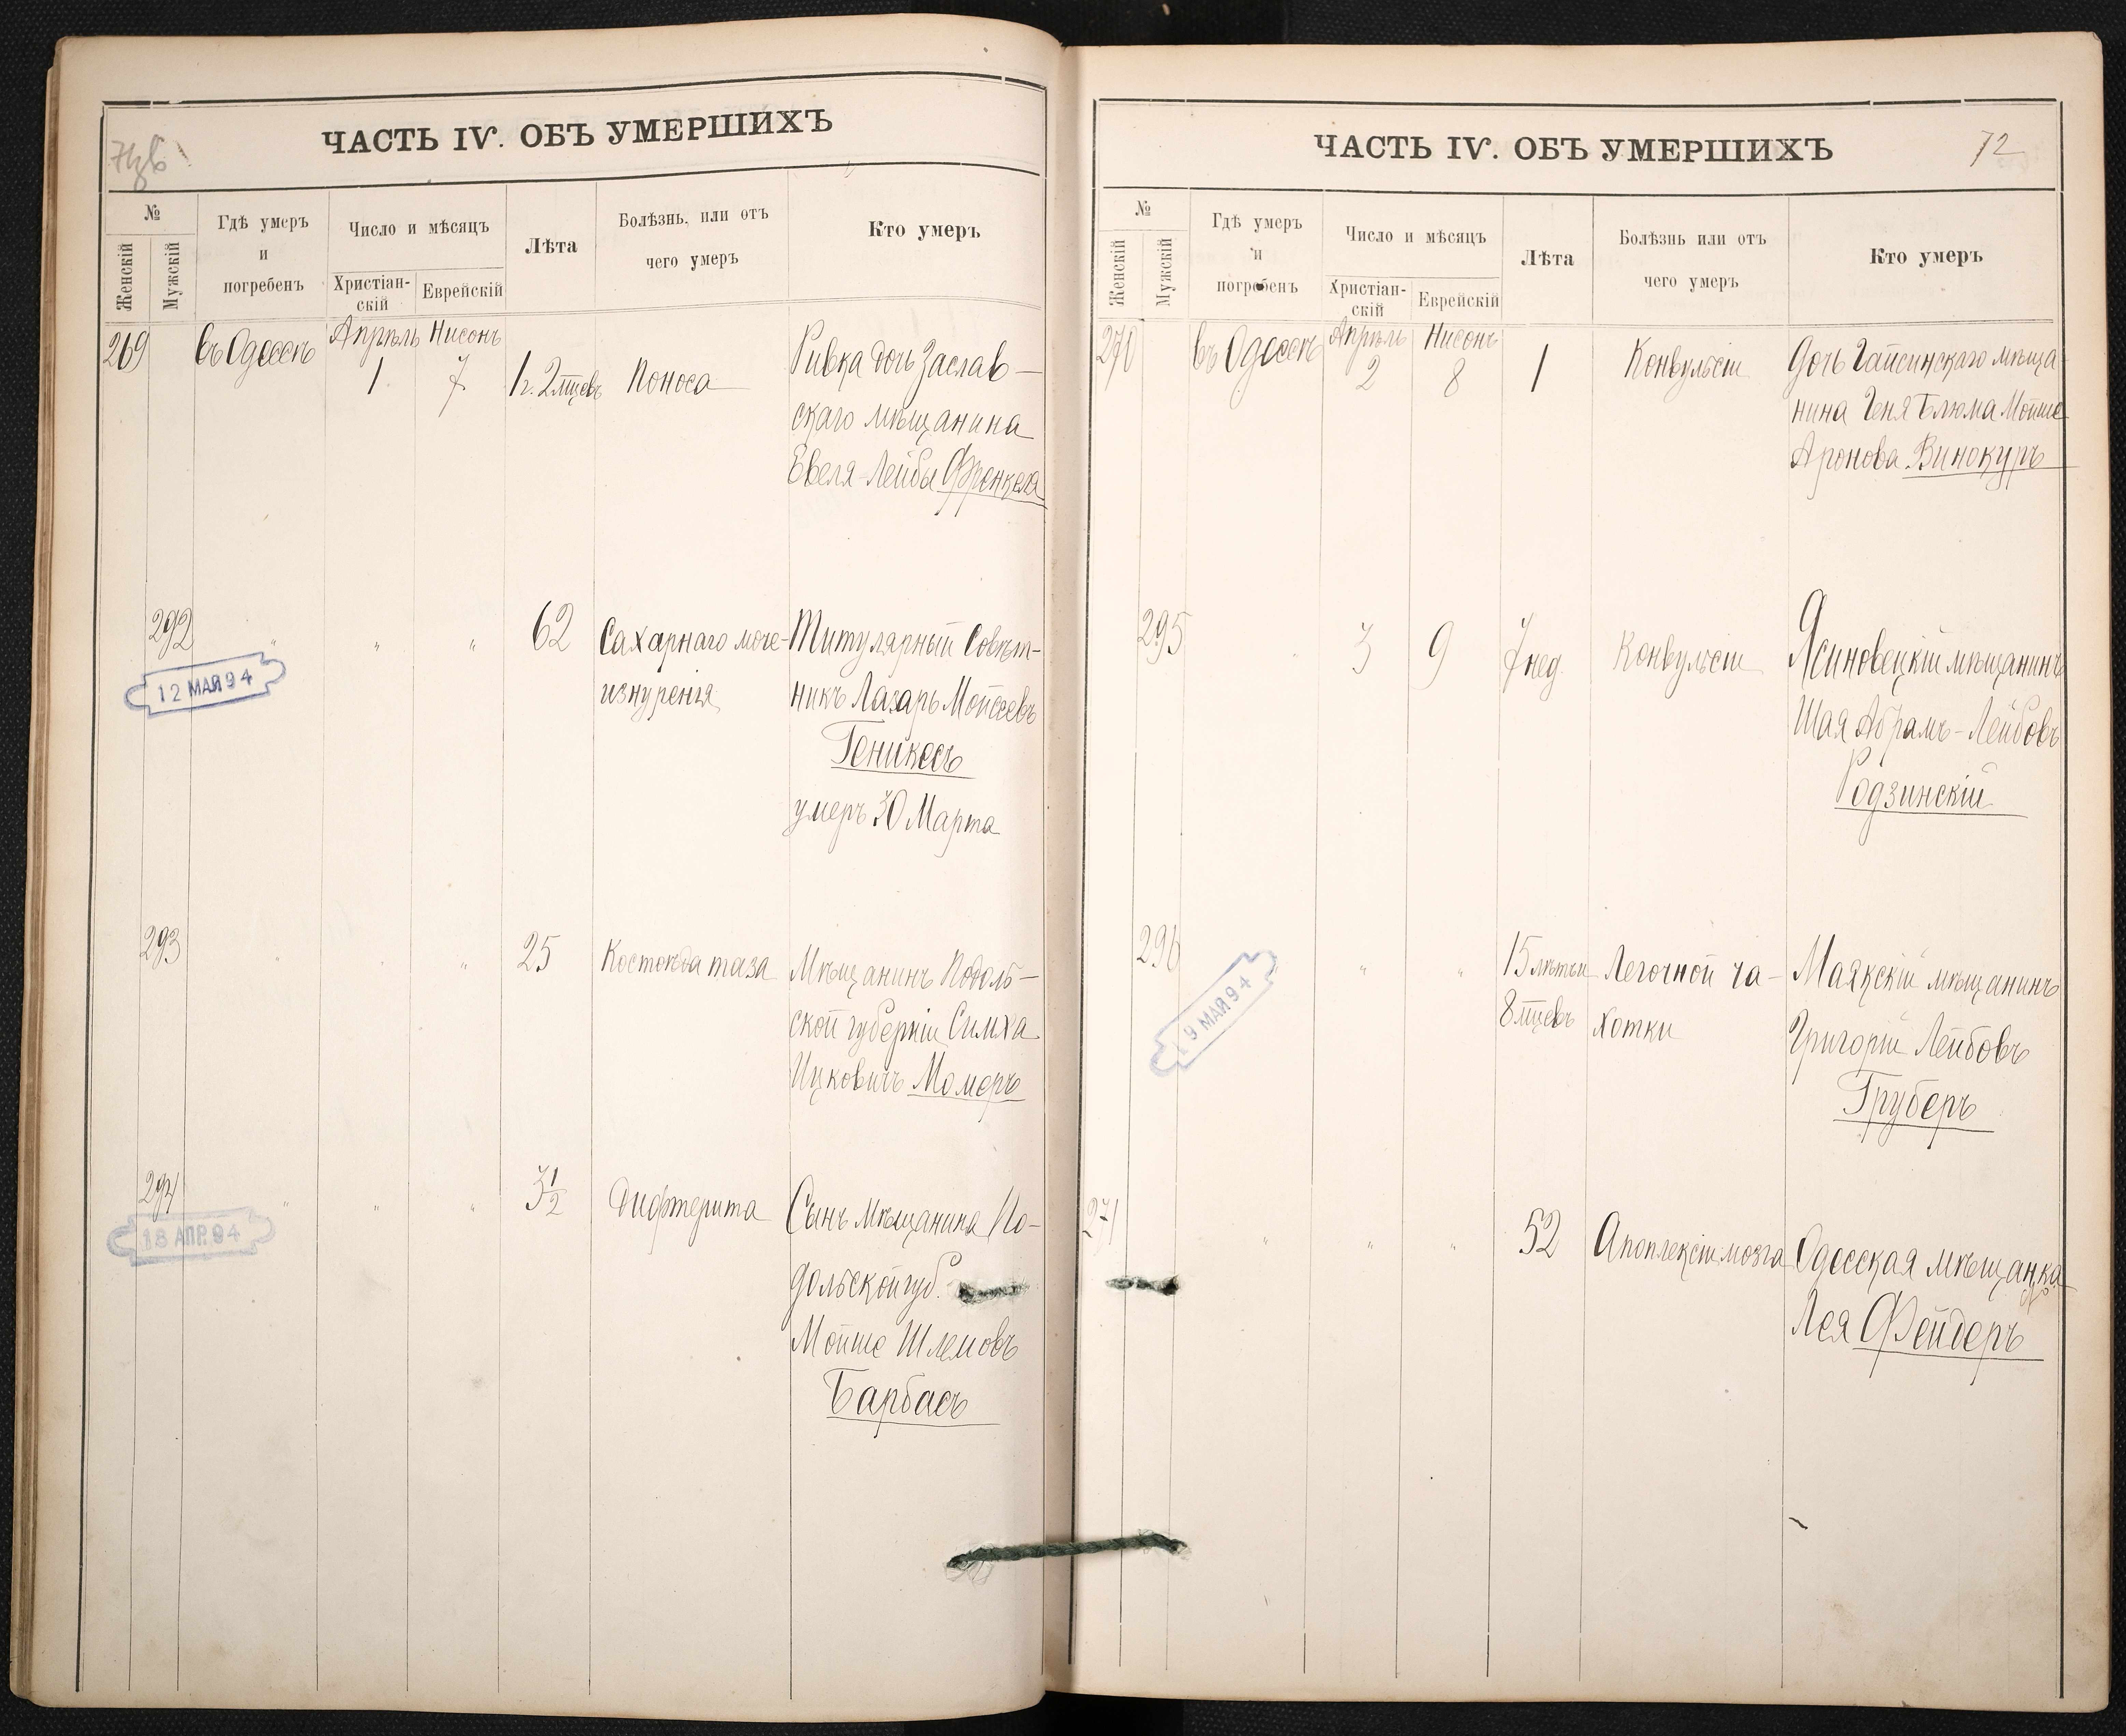 ЧАСТЬ IV. ОБЪ УМЕРШИХЪ
№
Женскій
Мужскій
Гдѣ умеръ
и
погребенъ
Число и мѣсяцъ
Христіан-
скій
Еврейскій
Лѣта
Болѣзнь, или отъ
чего умеръ
Кто умеръ
269
въ Одессѣ
Апрѣль
1
Нисонъ
7
1 г. 2 мцевъ
Поноса
Ривка дочь Заслав-
скаго мѣщанина
Евеля-Лейбы Френкеля
292
12 МАЯ 94
"
"
"
62
Сахарнаго моче-
изнуренія
Титулярный Совѣт-
никъ Лазарь Мойсеевъ
Геникесъ
умеръ 30 Марта
293
"
"
"
25
Костоѣда таза
Мѣщанинъ Подоль-
ской губерніи Симха
Ицковичъ Момеръ
294
18 АПР. 94
"
"
"
3 1/2
Дифтерита
Сынъ мѣщанина По-
дольской губ.
Мойше Шлемовъ
Барбасъ
ЧАСТЬ IV. ОБЪ УМЕРШИХЪ
72
№
Женскій
Мужскій
Гдѣ умеръ
и
погребенъ
Число и мѣсяцъ
Христіан-
скій
Еврейскій
Лѣта
Болѣзнь или отъ
чего умеръ
Кто умеръ
270
въ Одессѣ
Апрѣль
2
Нисонъ
8
1
Конвульсіи
Дочь Гайсинскаго мѣща-
нина Геня Блюма Мойше
Аронова Винокуръ
295
"
3
9
7 нед.
Конвульсіи
Ясиновецкій мѣщанинъ
Шая Абрамъ-Лейбовъ
Родзинскій
296
19 МАЯ 94
"
"
15 лѣтъ и
8 мцевъ
Легочной ча-
хотки
Маякскій мѣщанинъ
Григорій Лейбовъ
Груберъ
271
"
"
"
52
Апоплексіи мозга
Одесская мѣщанка
Лея Фейдеръ